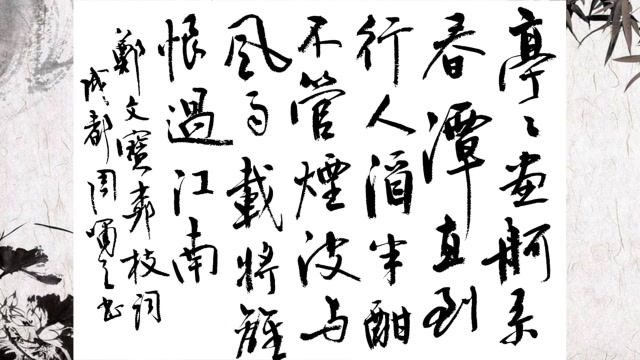 亭〻畫舸系
春潭直到
行人酒半酣
不管煙波与
風雨載將離
恨過江南
鄭文寶柳枝詞
成都周嘯天書